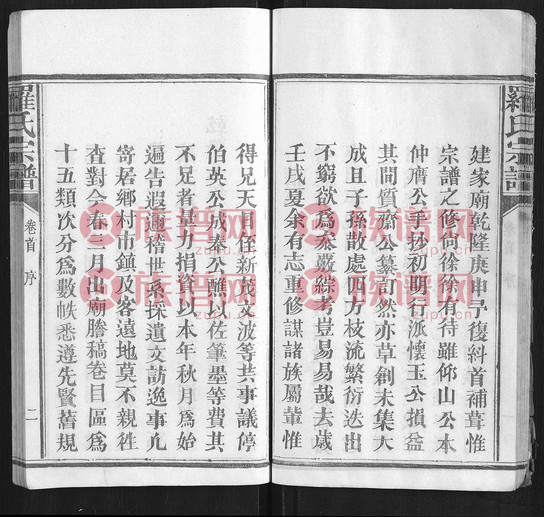 建家廟乾隆庚申予復糾首補葺惟
宗譜之修尚徐徐有待雖仰山公本
仲濟公手抄初明行派懷玉公損益
其間質齋公纂訂然亦草創未集大
成且子孫散處四方枝流繁衍迭出
不窮欲爲采覈綜考豈易易哉去歲
壬戌夏余有志重修謀諸族屬輩惟
羅氏宗譜
得兄天具侄新茂文波等共事議停
伯英公成泰公醮以佐筆墨等費其
不足者量力捐資以本年秋月爲始
遍告遐邇稽世系採遺文訪逸事凡
寄居鄉村市鎮及客遠地莫不親徃
查對今春三月出廟謄稿卷目區爲
十五類次分爲數帙悉遵先賢舊規
羅氏宗譜
卷首 序
二
族譜网
zupu.cn